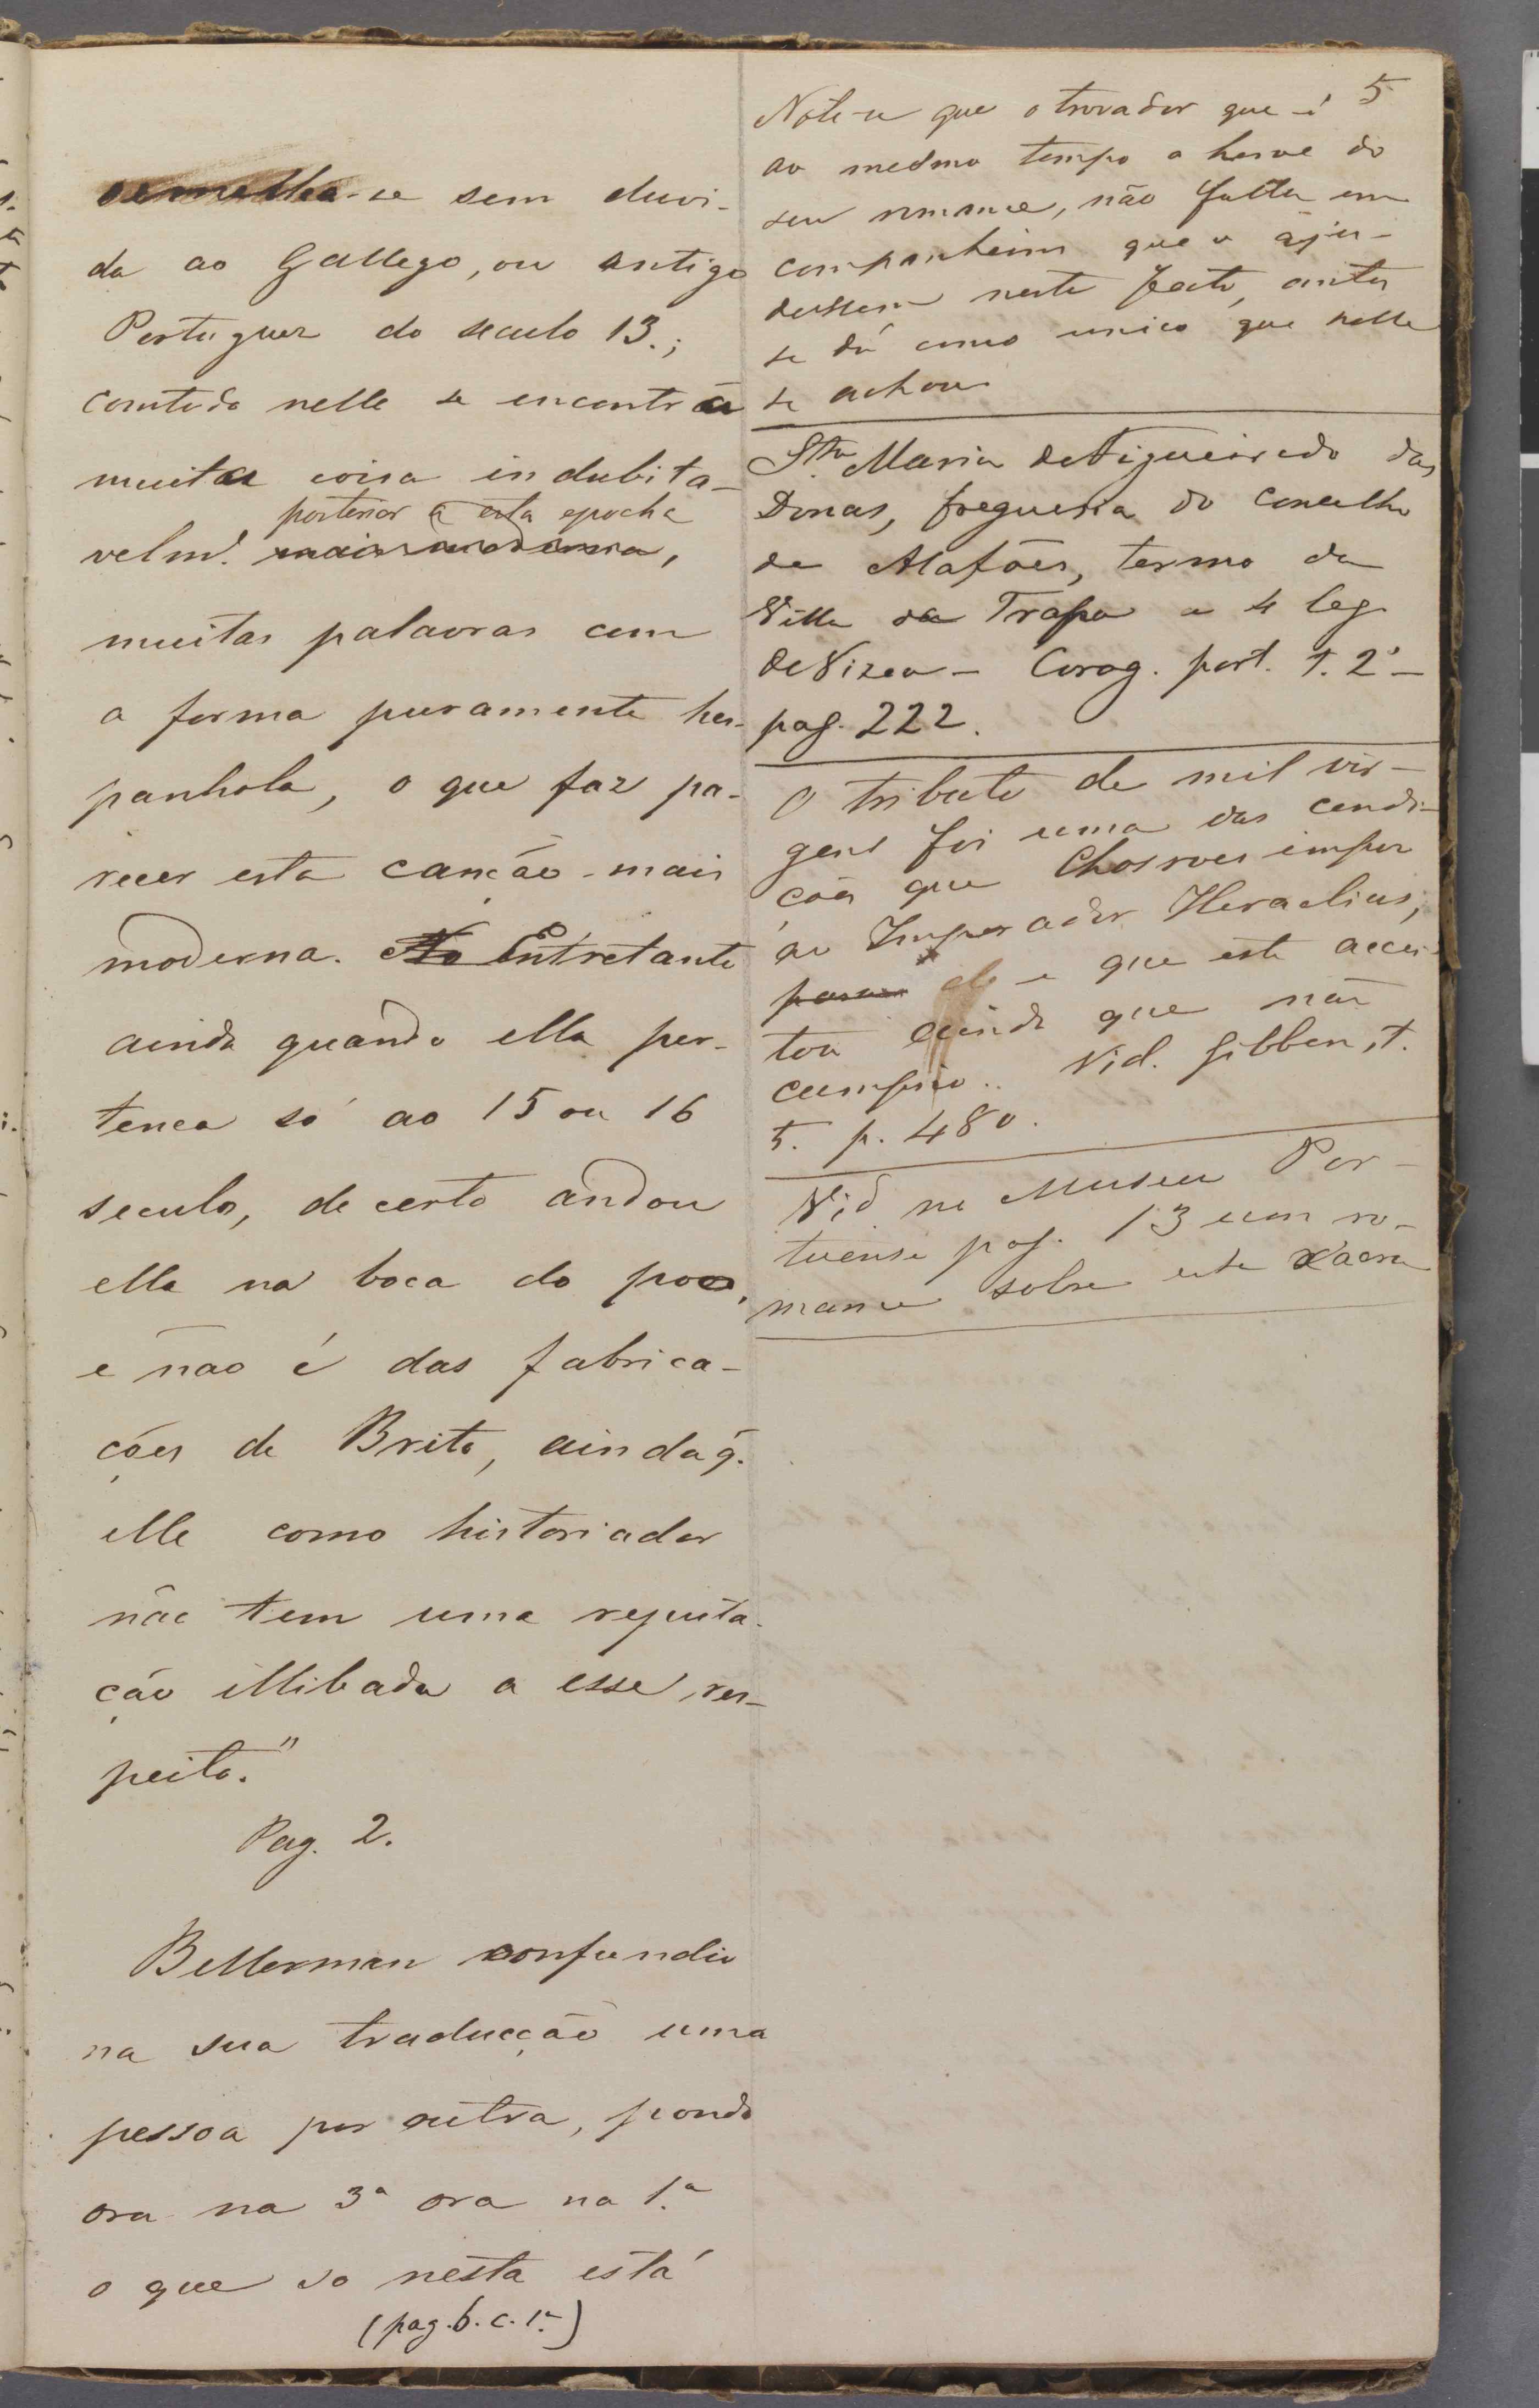 semelha-se sem duvi-
da ao Gallego, ou antigo
Portuguez do seculo 13.;
comtudo nelle se encontra
muita coisa indubita-
posterior a esta epocha
velm.e mais moderna,
muitas palavras com
a forma puramente hes-
panhola, o que faz pa-
recer esta canção mais
moderna. No Entretanto
ainda quando ella per-
tença só ao 15 ou 16
seculo, de certo andou
ella na boca do povo,
e não é das fabrica-
ções de Brito, ainda q.
elle como historiador
não tem uma reputa-
ção illibada a esse res-
peito."
Pag. 2.
Bellerman confundio
na sua traducção uma
pessoa por outra, pondo
ora na 3ª ora na 1.ª
o que so nesta está
(pag. 6. c. 1.ª)
5
Note-se que o trovador que é
ao mesmo tempo o heroe do
seu romance, não falla em
companheiros que o aju-
dassem neste feito, antes
se dá como unico que nelle
se achou
Sta Maria de Figueiredo das
Donas, freguesia do Concelho
de Alafões, termo da
Villa da Trapa a 4 leg.
de Vizeu - Corog. port. t. 2º -
pag. 222.
O tributo de mil vir-
gens foi uma das condi-
ções que Chosroes impoz
ao Imperador Heraclius,
e que este accei-
tou ainda que não
cumprio.. Vid. Gibbon, t.
5. p. 480.
Vid no Museu Por-
tuense pag. 13 um ro-
mance sobre esta xacra